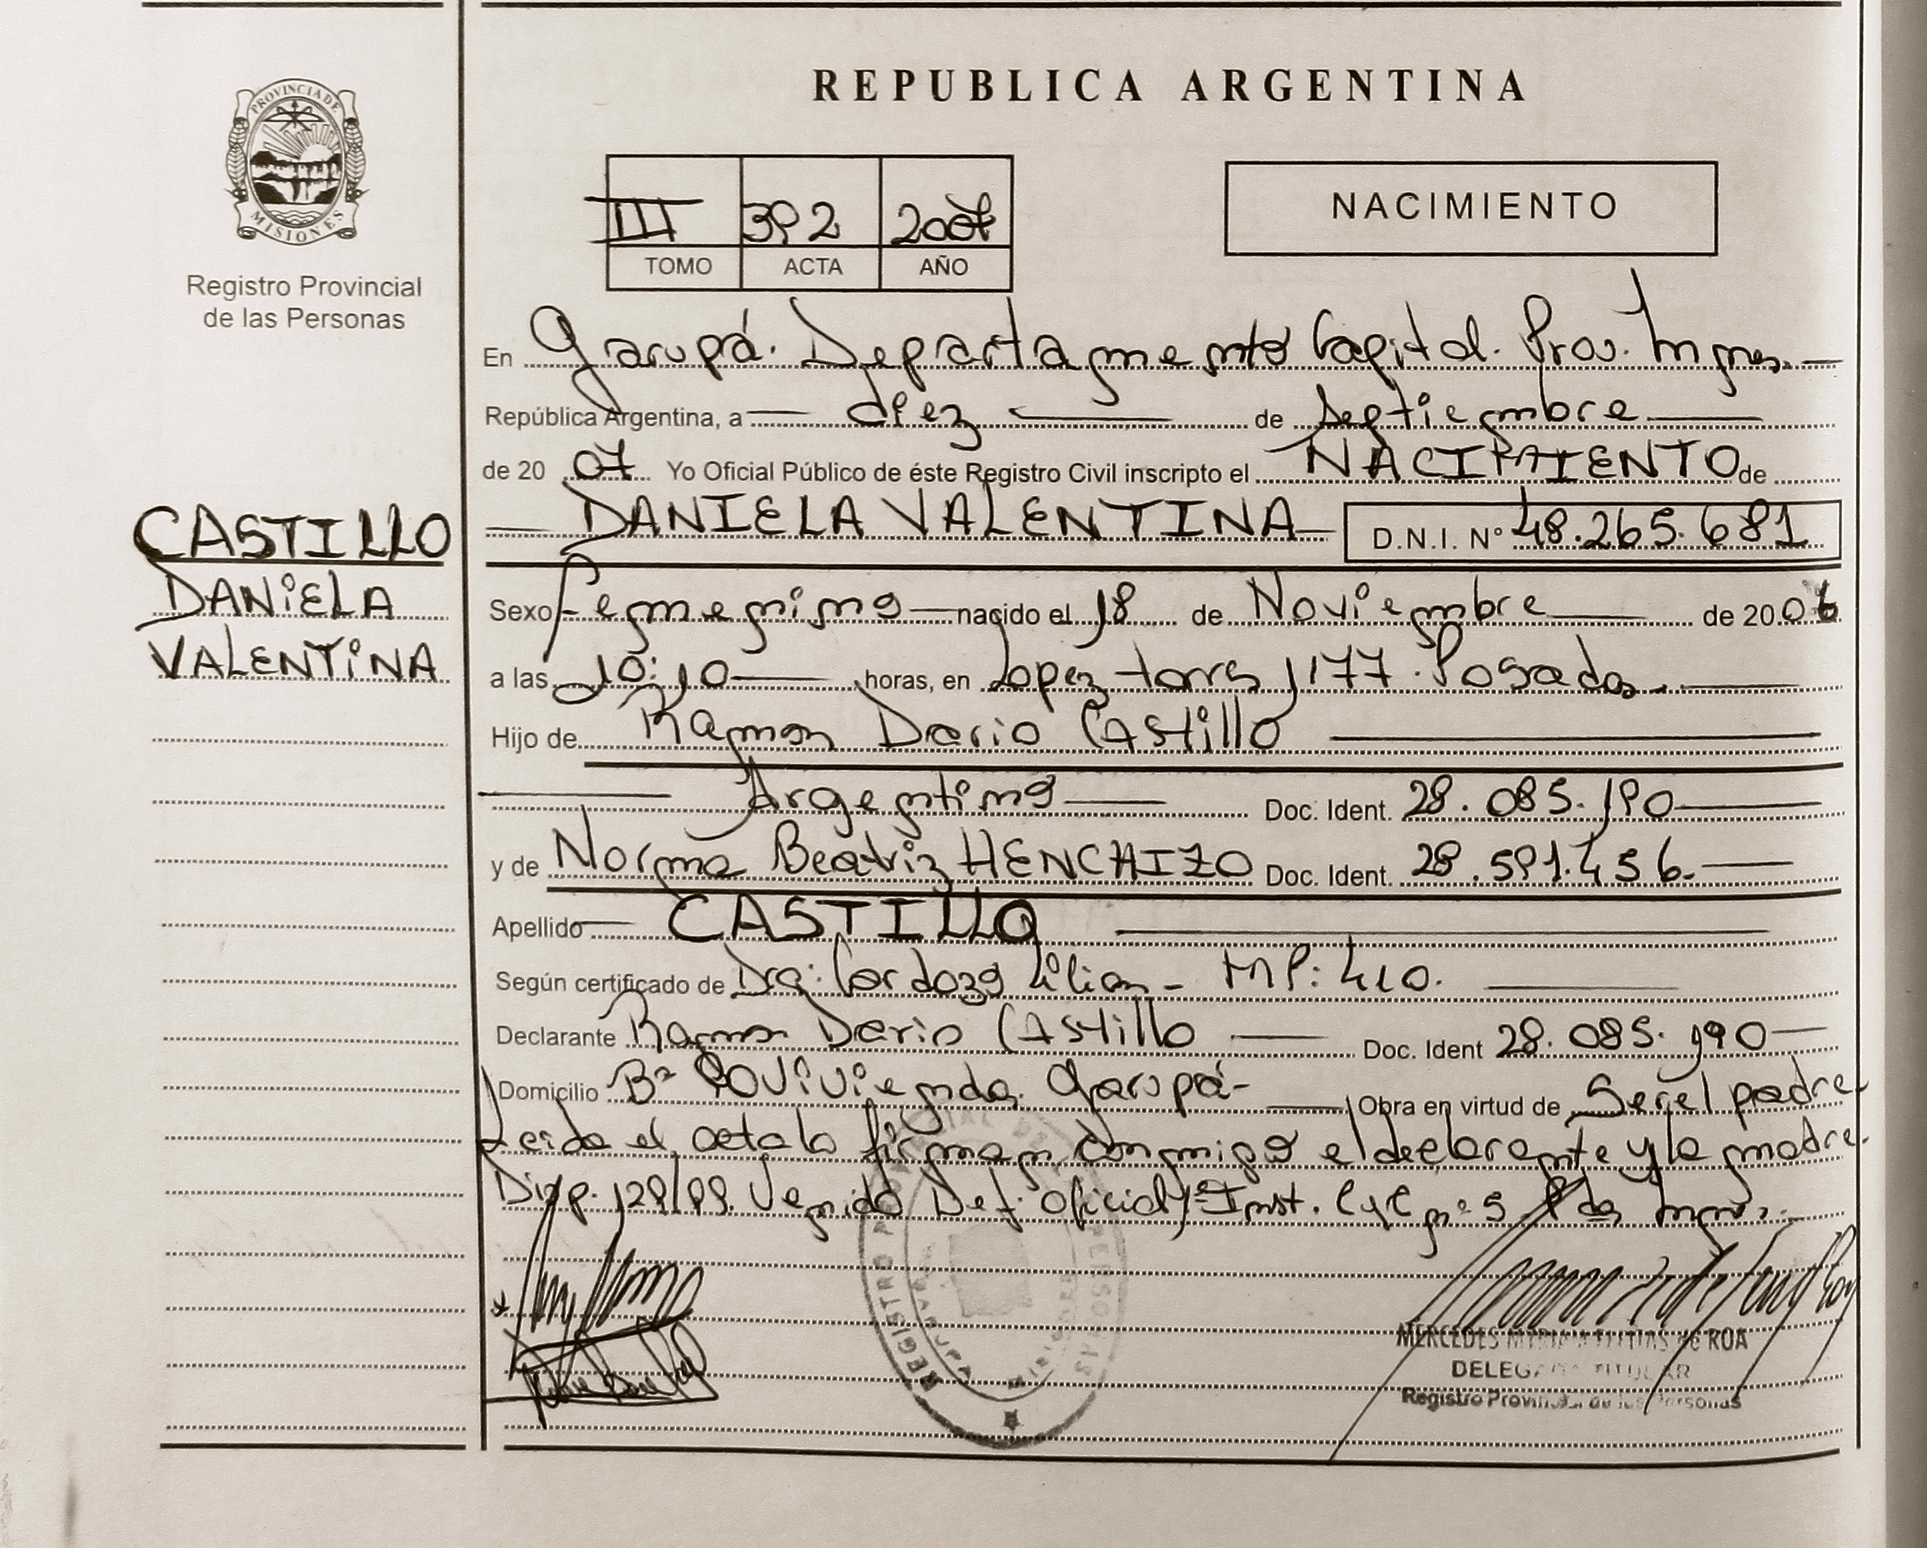 PROVINCIA DE
MISIONES
Registro Provincial
de las Personas
REPUBLICA ARGENTINA
III 392 2007
TOMO ACTA AÑO
NACIMIENTO
En Garupá. Departamento Capital. Prov. Mnes.
República Argentina, a diez de Septiembre
de 20 07 Yo Oficial Público de éste Registro Civil inscripto el NACIMIENTO de
DANIELA VALENTINA D.N.I. Nº 48.265.681
CASTILLO
DANIELA
VALENTINA
Sexo Femenino nacido el 18 de Noviembre de 2006
a las 10:10 horas, en Lopez torres 1177. Posadas.
Hijo de Ramon Dario CAStillo
Argentino Doc. Ident. 28.085.190
y de Norma Beatriz HENCHIZO Doc. Ident. 28.591.456.
Apellido CASTILLO
Según certificado de Dra: Cardozo Lilian - MP: 410.
Declarante Ramon Dario CAStillo Doc. Ident 28.085.190
Domicilio Bº Covivienda Garupá- Obra en virtud de Ser el padre-
Leida el acta la firman conmigo el declarante y la madre.
Disp. 129/99. Venido Def. Oficial 1ª Inst. CyC nº 5 Pdas Mnes.
MERCEDES de ROA
DELEGADA TITULAR
Registro Provincial de las Personas
REGISTRO
MISIONES